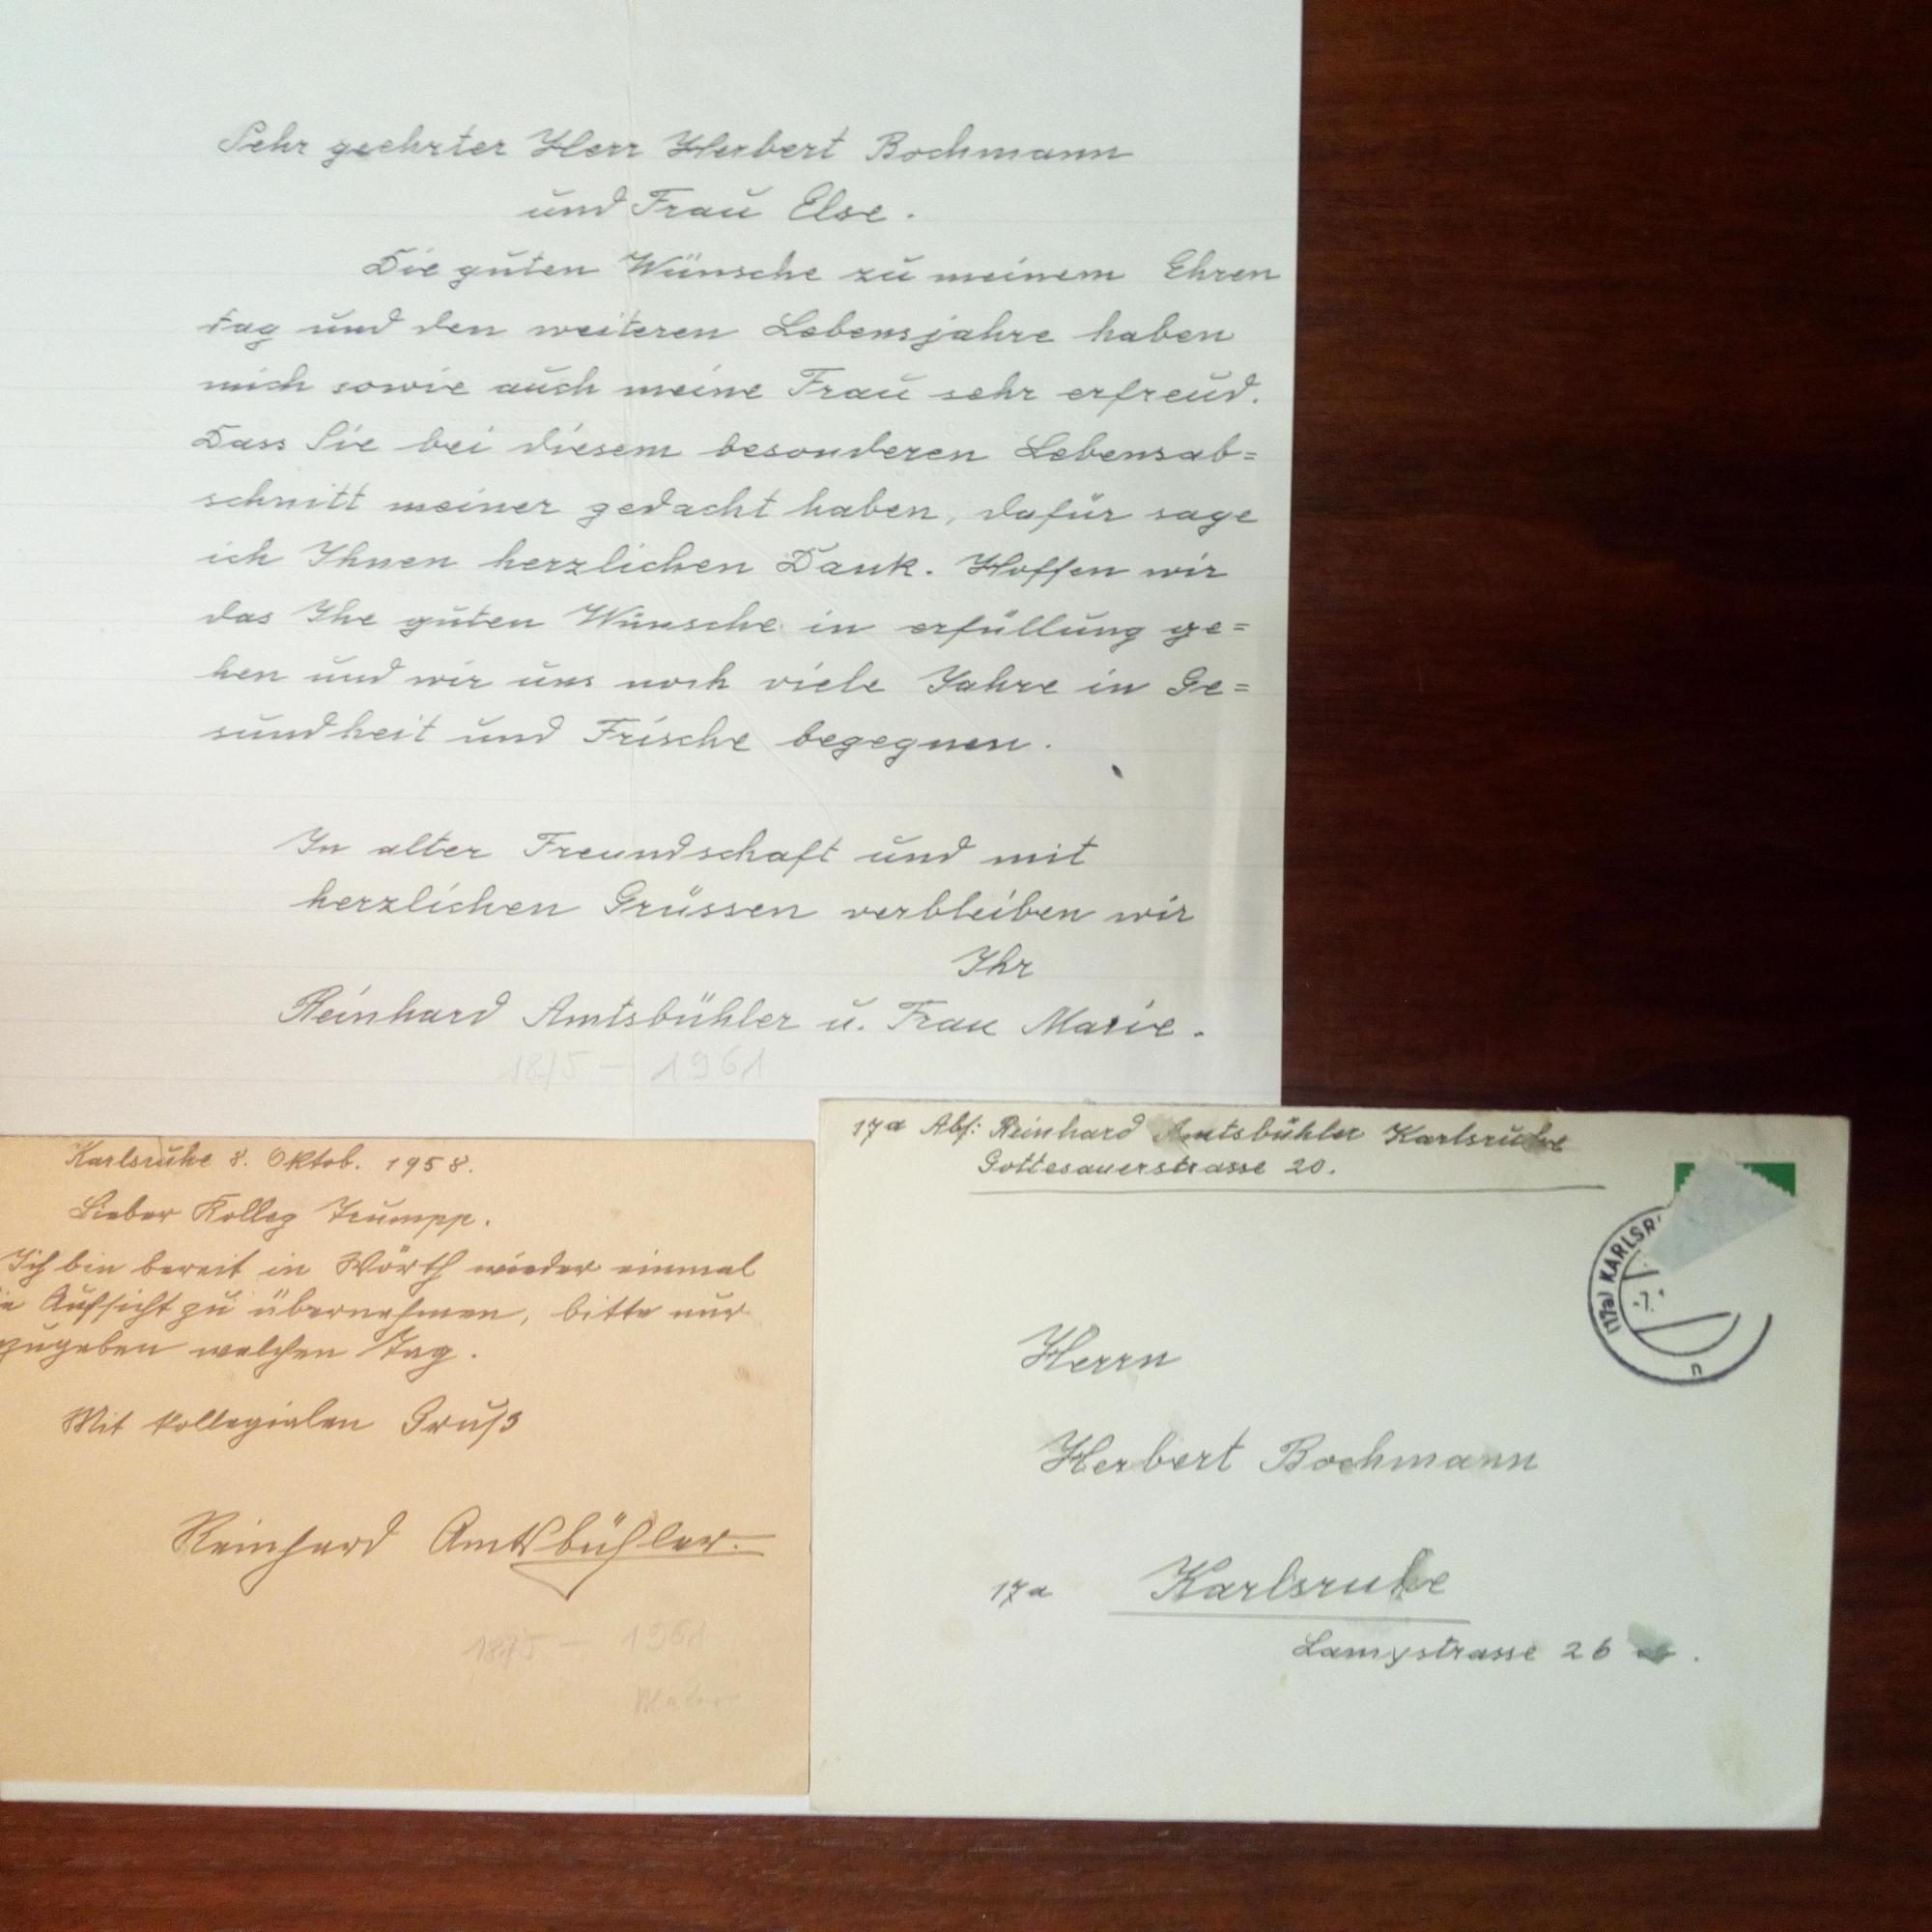 Sehr geehrter Herr Herbert Bochmann
und Frau Else.
Die guten Wünsche zu meinem Ehren
tag und den weiteren Lebensjahre haben
mich sowie auch meine Frau sehr erfreud.
Dass Sie bei diesem besonderen Lebensab=
schnitt meiner gedacht haben, dafür sage
ich Ihnen herzlichen Dank. Hoffen wir
das Ihe guten Wünsche in erfüllung ge=
hen und wir uns noch viele Jahre in Ge=
sundheit und Frische begegnen.
In alter Freundschaft und mit
herzlichen Grüssen verbleiben wir
Ihr
Reinhard Amtsbühler u. Frau Marie.
1875 – 1961
Karlsruhe 8. Oktob. 1958.
Lieber Kolleg Trumpp.
Ich bin bereit in Wörth wieder einmal
Aufsicht zu übernehmen, bitte nur
zugeben welchen Tag.
Mit kollegialen Gruß
Reinhard Amtsbühler.
1875 – 1961
Maler
17a Abs: Reinhard Amtsbühler Karlsruhe
Gottesauerstrasse 20.
(17a) KARLSR
-7.
n
Herrn
Herbert Bochmann
17a Karlsruhe
Lamystrasse 26